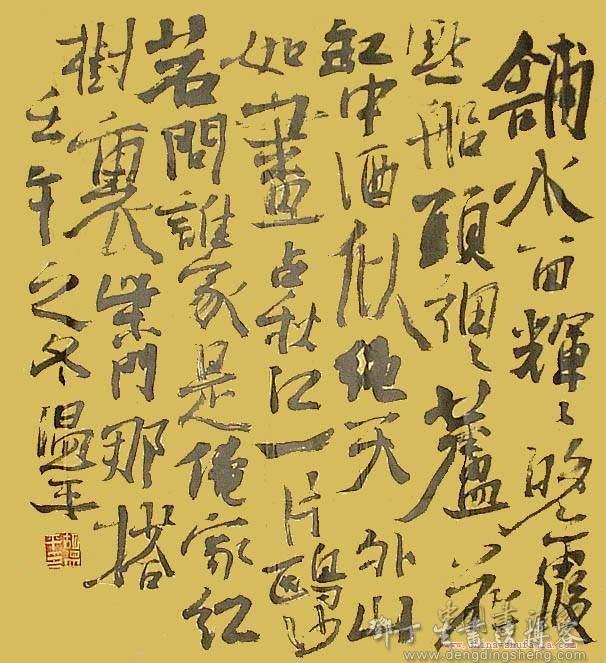 舖水面輝〻晚霞
點船頭細〻蘆花
缸中酒似繩天外山
如畫占秋江一片鷗沙
若問誰家是俺家紅
樹裏柴門那搭
壬午之冬温平
www.dengdingsheng.com